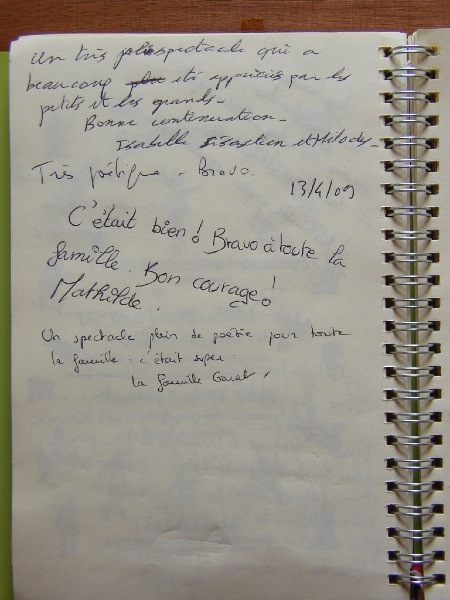 Un très joli spectacle qui a
beaucoup été appréciés par les
petits et les grands -
Bonne continuation -
Isabelle Sébastien et Mélody -
Très poétique - Bravo.
13/4/09
C'était bien ! Bravo à toute la
famille. Bon courage !
Mathilde.
Un spectacle plein de poésie pour toute
la famille. c'était super.
la famille